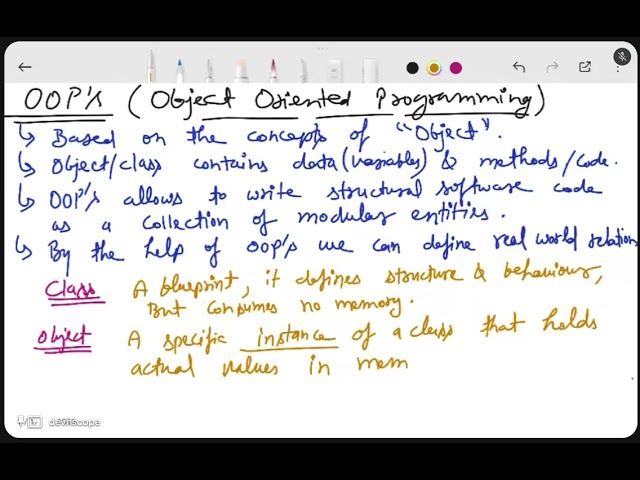 OOP's (Object Oriented Programming)
↳ Based on the concepts of "Object".
↳ Object/class contains data (variables) & methods/code.
↳ OOP's allows to write structural software code
as a collection of modular entities.
↳ By the help of OOP's we can define real world relation
Class A blueprint, it defines structure & behaviour,
But consumes no memory.
Object A specific instance of a class that holds
actual values in mem